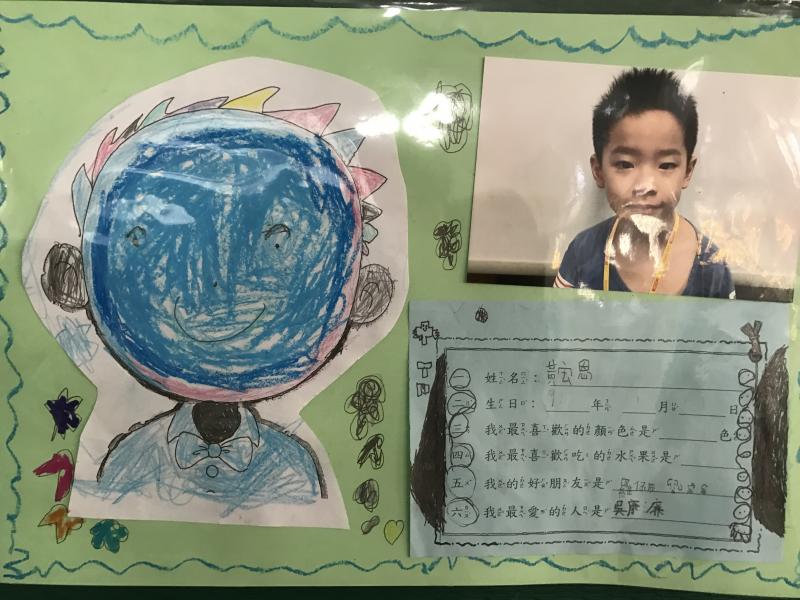 一 姓名：黃宏恩
二 生日： 年 月 日
三 我最喜歡的顏色是 色
四 我最喜歡吃的水果是
五 我的好朋友是
六 我最愛的人是吳